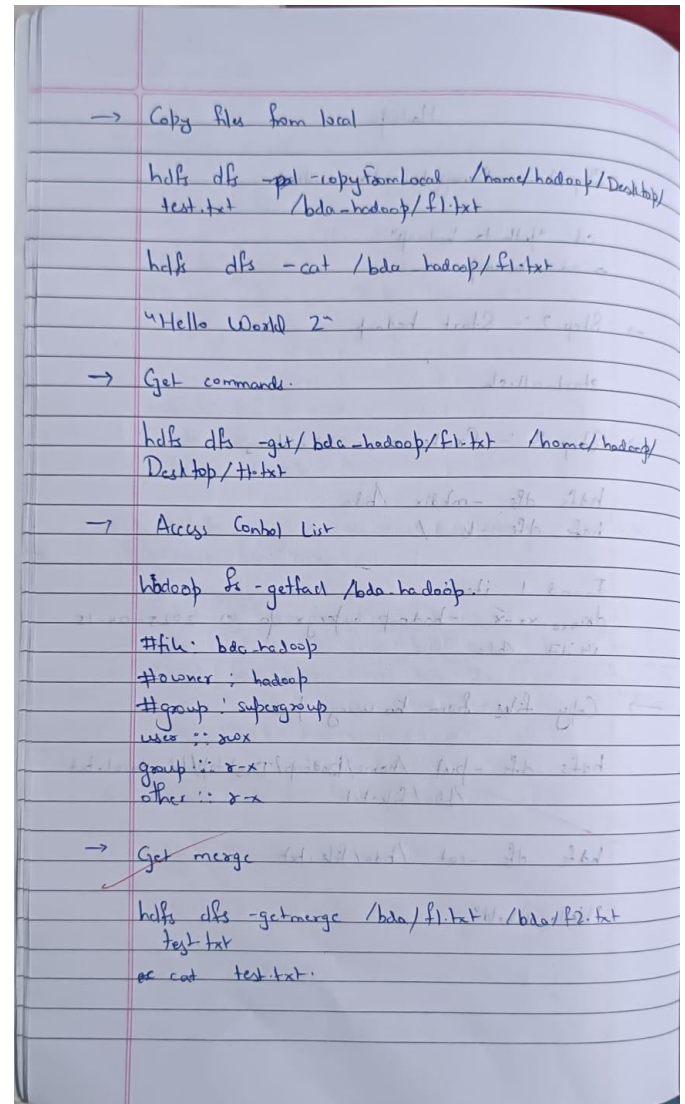 → Copy files from local
hdfs dfs -copyFromLocal /home/hadoop/Desktop/
test.txt /bda-hadoop/f1.txt
hdfs dfs -cat /bda hadoop/f1.txt
"Hello World 2"
→ Get commands.
hdfs dfs -get/bda-hadoop/f1.txt /home/hadoop/
Desktop/t1.txt
→ Access Control List
hadoop fs -getfacl /bda-hadoop.
#file: bda-hadoop
#owner: hadoop
#group: supergroup
user :: rwx
group :: r-x
other :: r-x
→ Get merge
hdfs dfs -getmerge /bda/f1.txt /bda/f2.txt
test txt
cat test.txt.